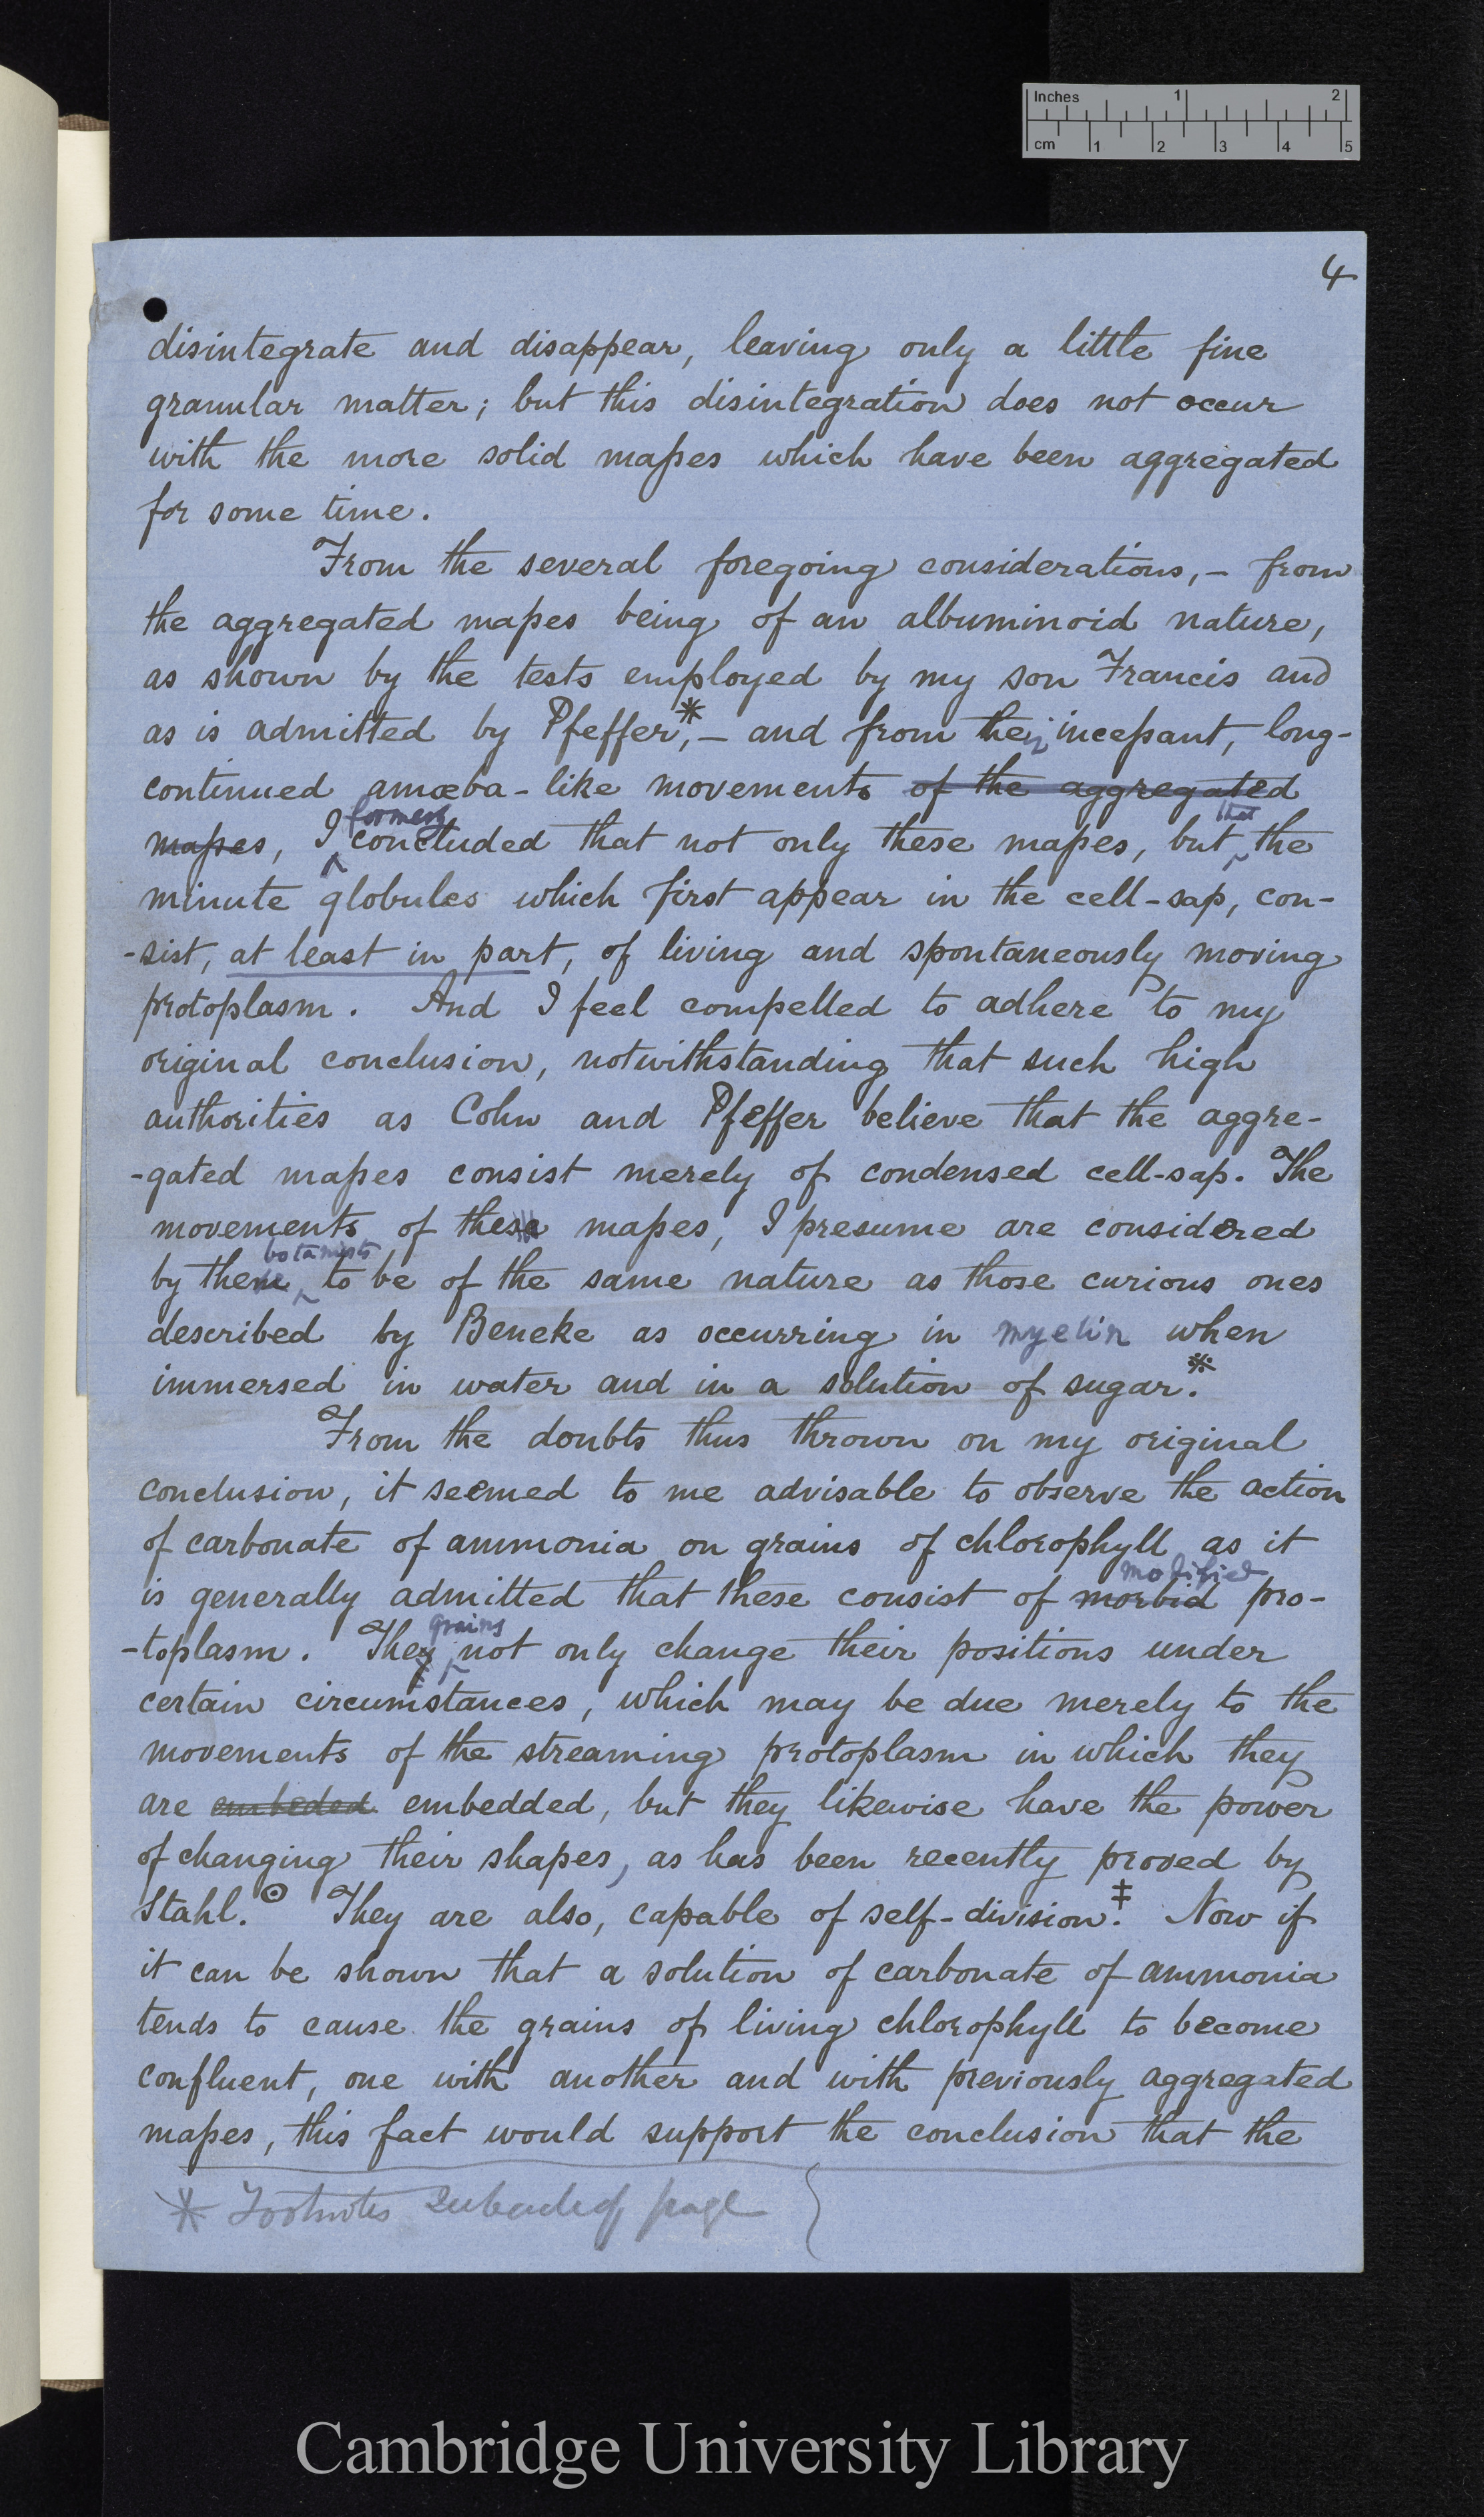 Inches 1 2
cm 1 2 3 4 5
4
disintegrate and disappear, leaving only a little fine
granular matter; but this disintegration does not occur
with the more solid masses which have been aggregated
for some time.
From the several foregoing considerations, — from
the aggregated masses being of an albuminoid nature,
as shown by the tests employed by my son Francis and
as is admitted by Pfeffer*, — and from their incessant, long-
continued amœba-like movements of the aggregated
masses, I formerly concluded that not only these masses, but that the
minute globules which first appear in the cell-sap, con-
-sist, at least in part, of living and spontaneously moving
protoplasm. And I feel compelled to adhere to my
original conclusion, notwithstanding that such high
authorities as Cohn and Pfeffer believe that the aggre-
-gated masses consist merely of condensed cell-sap. The
movements of these masses, I presume are considered
by these botanists to be of the same nature as those curious ones
described by Beneke as occurring in myelin when
immersed in water and in a solution of sugar.*
From the doubts thus thrown on my original
conclusion, it seemed to me advisable to observe the action
of carbonate of ammonia on grains of chlorophyll as it
is generally admitted that these consist of morbid modified pro-
-toplasm. They grains not only change their positions under
certain circumstances, which may be due merely to the
movements of the streaming protoplasm in which they
are embeded embedded, but they likewise have the power
of changing their shapes, as has been recently proved by
Stahl.⊙ They are also, capable of self-division.‡ Now if
it can be shown that a solution of carbonate of ammonia
tends to cause the grains of living chlorophyll to become
confluent, one with another and with previously aggregated
masses, this fact would support the conclusion that the
* Footnotes page
Cambridge University Library